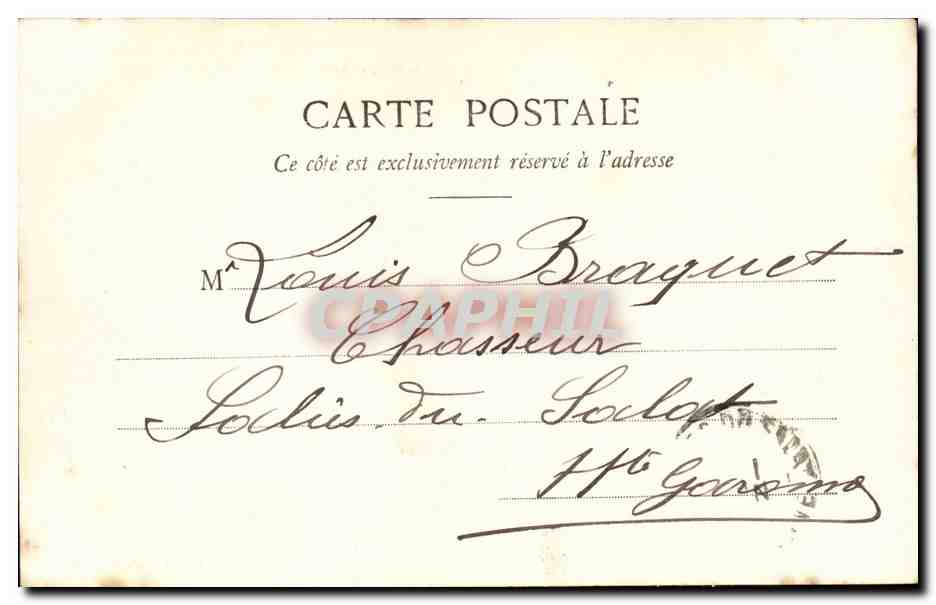 CARTE POSTALE
Ce côté est exclusivement réservé à l'adresse
Mr Louis Braquet
CPAPHIL
Chasseur
Saliès-du-Salat
Hte Garonne